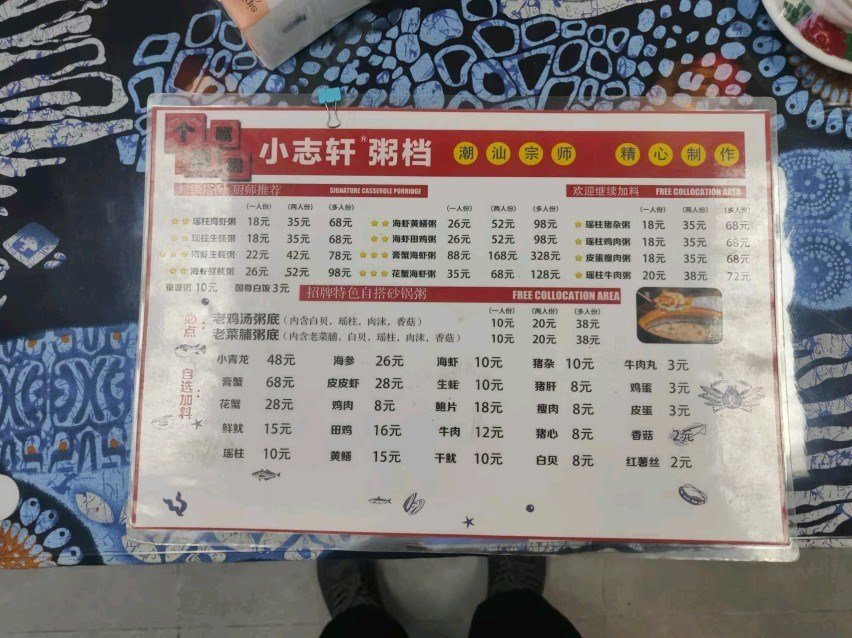 小志轩®粥档 潮汕宗师 精心制作
厨师推荐 SIGNATURE CASSEROLE PORRIDGE 欢迎继续加料 FREE COLLOCATION AREA
(一人份) (两人份) (多人份) (一人份) (两人份) (多人份) (一人份) (两人份) (多人份)
瑶柱海虾粥 18元 35元 68元 海虾黄鳝粥 26元 52元 98元 瑶柱猪杂粥 18元 35元 68元
瑶柱生蚝粥 18元 35元 68元 海虾田鸡粥 26元 52元 98元 瑶柱鸡肉粥 18元 35元 68元
海虾生蚝粥 22元 42元 78元 膏蟹海虾粥 88元 168元 328元 皮蛋瘦肉粥 18元 35元 68元
海虾鲜鱿粥 26元 52元 98元 花蟹海虾粥 35元 68元 128元 瑶柱牛肉粥 20元 38元 72元
番薯粥 10元 国尊白饭 3元 招牌特色自搭砂锅粥 FREE COLLOCATION AREA
(一人份) (两人份) (多人份)
必点: 老鸡汤粥底(内含白贝,瑶柱,肉沫,香菇) 10元 20元 38元
老菜脯粥底(内含老菜脯,白贝,瑶柱,肉沫,香菇) 10元 20元 38元
自选加料:
小青龙 48元 海参 26元 海虾 10元 猪杂 10元 牛肉丸 3元
膏蟹 68元 皮皮虾 28元 生蚝 10元 猪肝 8元 鸡蛋 3元
花蟹 28元 鸡肉 8元 鲍片 18元 瘦肉 8元 皮蛋 3元
鲜鱿 15元 田鸡 16元 牛肉 12元 猪心 8元 香菇 2元
瑶柱 10元 黄鳝 15元 干鱿 10元 白贝 8元 红薯丝 2元